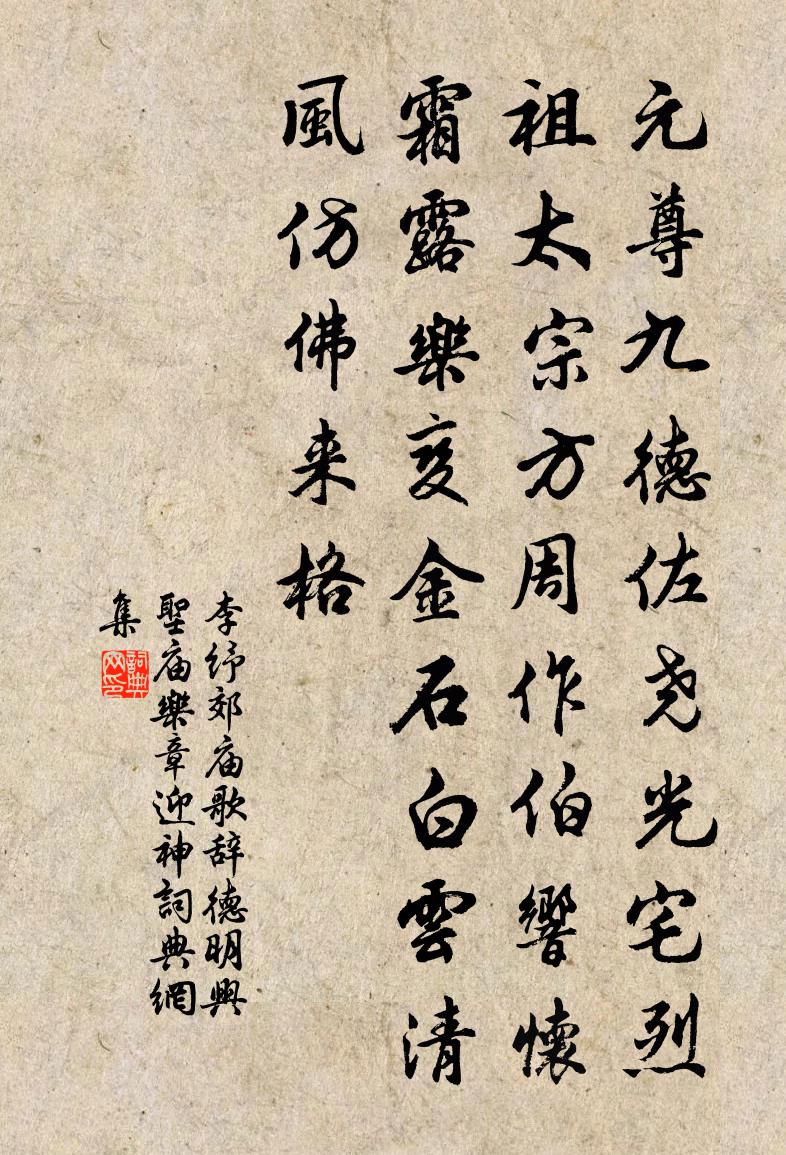 元尊九德佐尧光宅烈
祖太宗方周作伯響懷
霜露樂变金石白雲清
風仿佛来格
李纾郊庙歌辞德明興
聖庙樂章迎神詞典網
集
詞典
网印